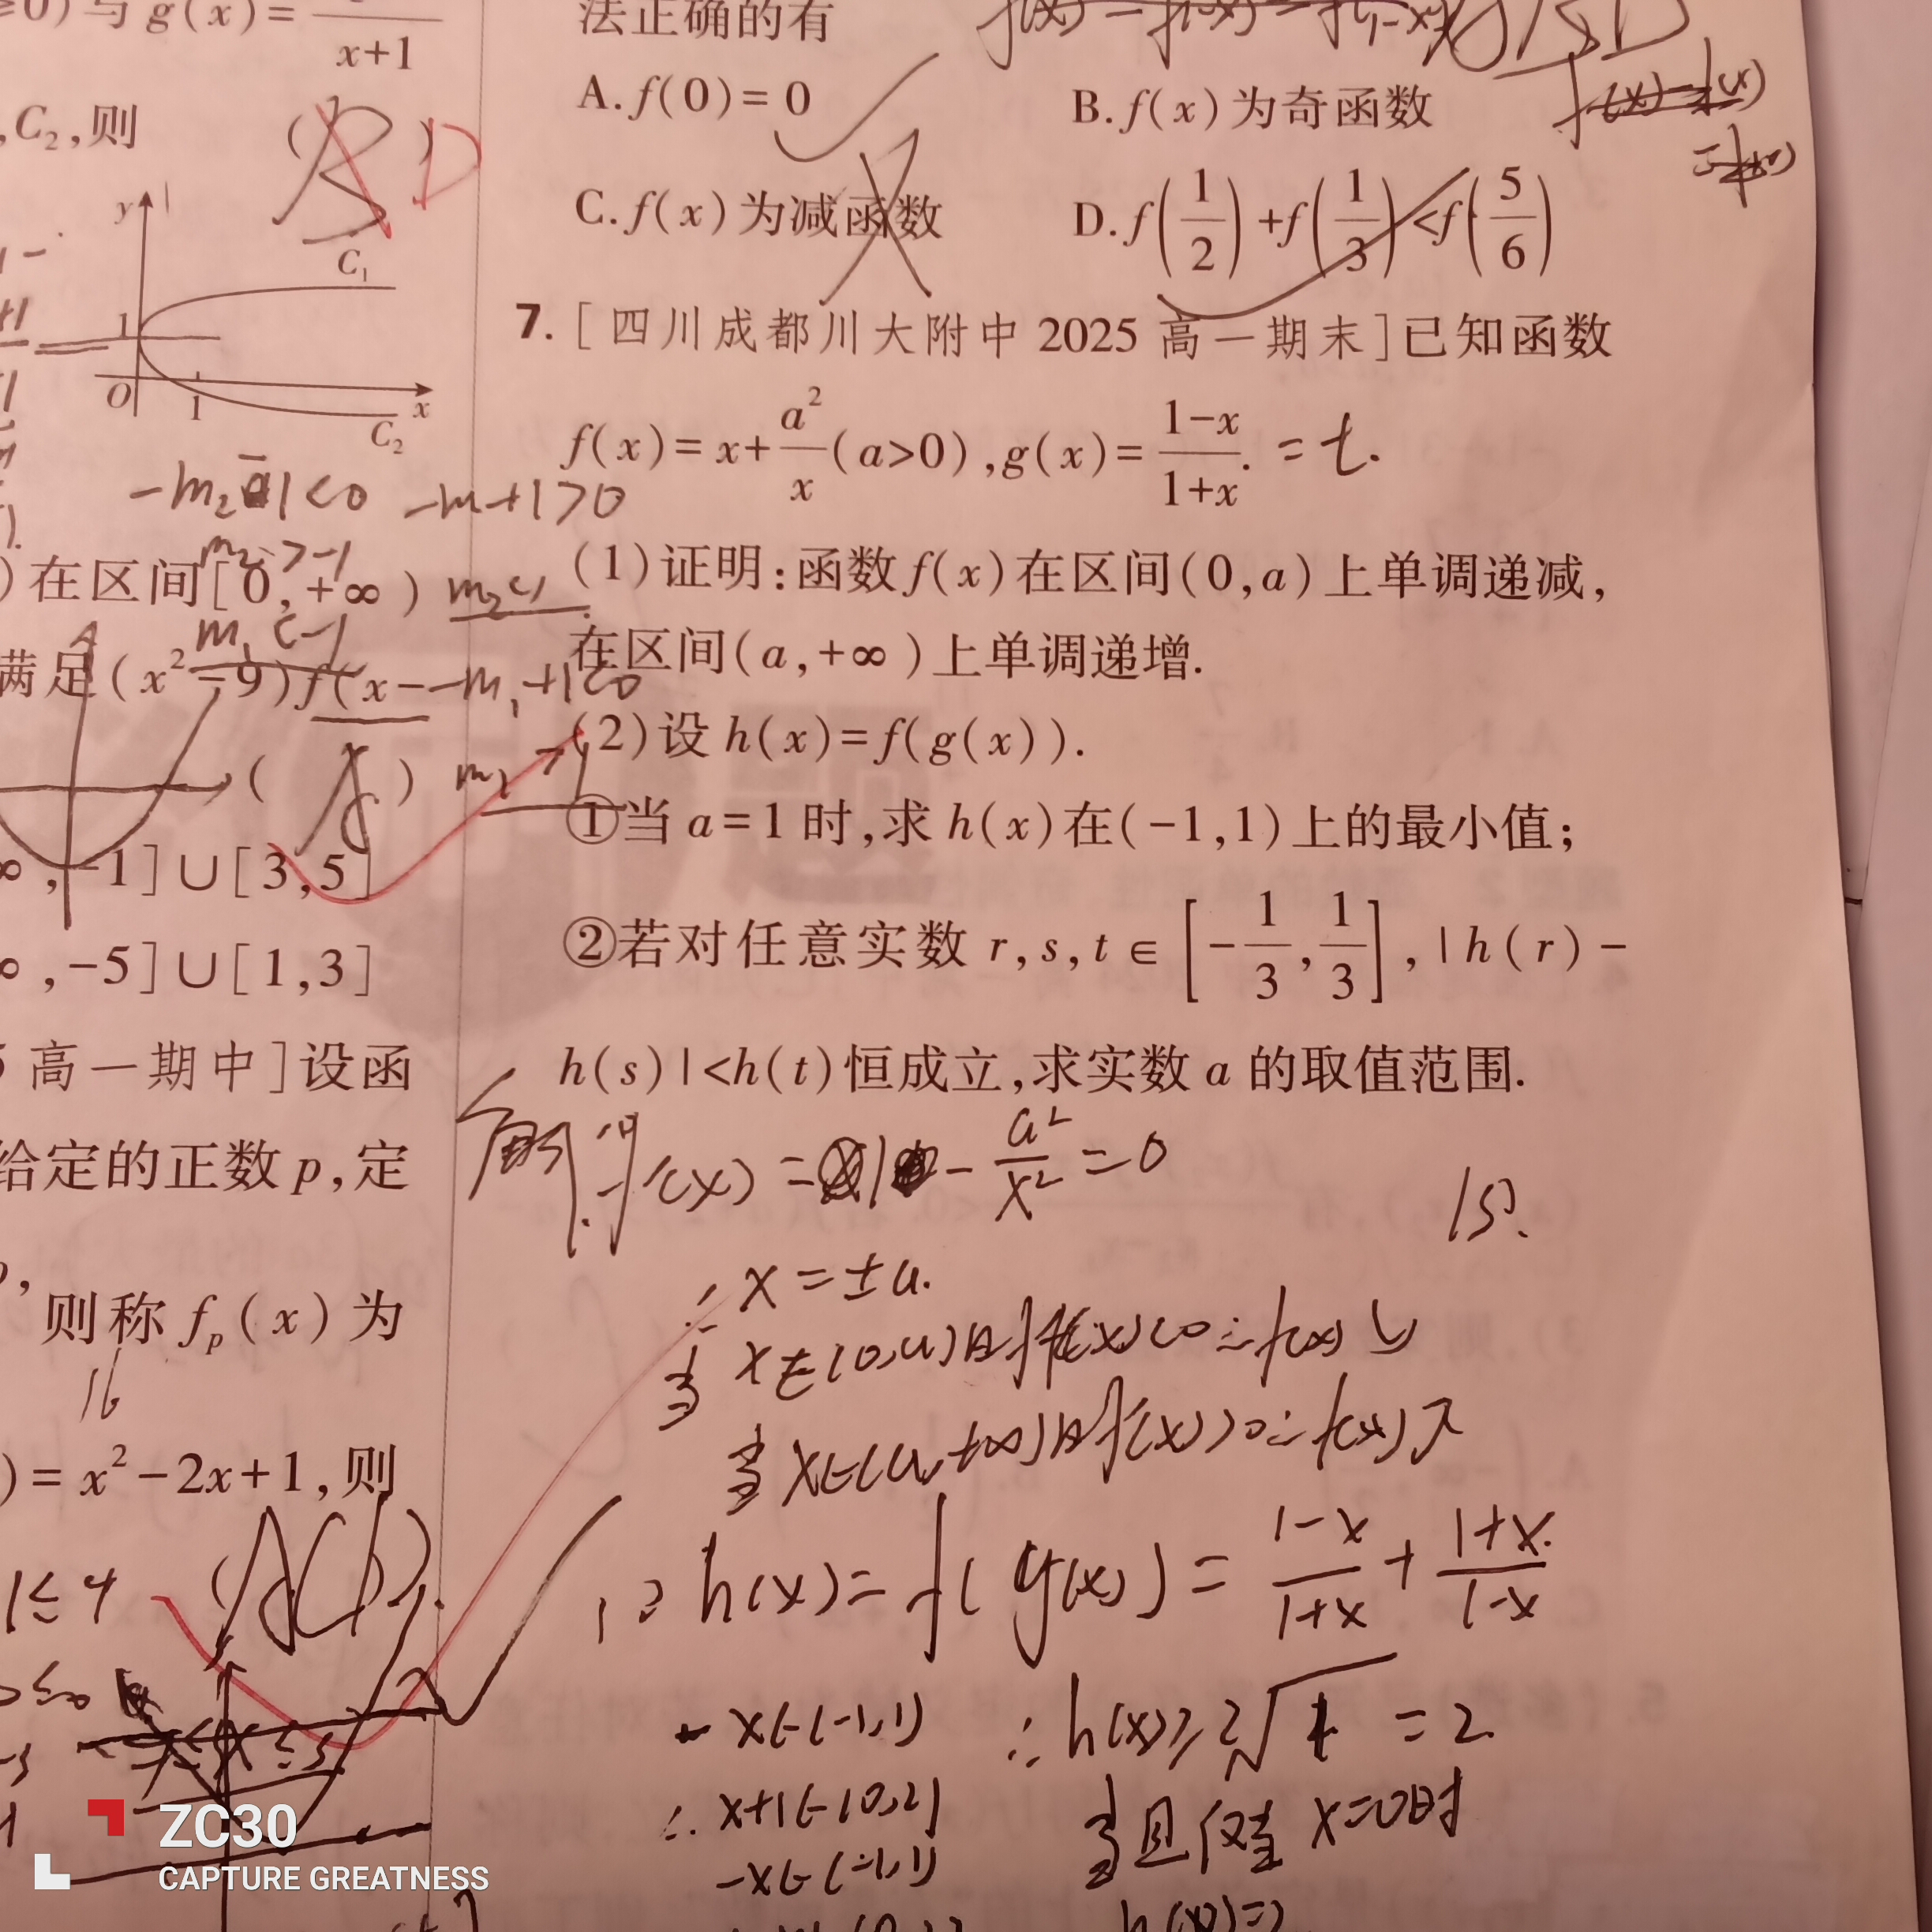 ≥0)与g(x)=
x+1
,C₂,则
( B ) D
y
C₁
1
O
1
x
C₂
-m₂-1<0 -m+1>0
m₂>-1
)在区间[0,+∞) m₂<1
m₁<-1
满足(x²-9)f(x-
-m₁+1<0
( )
∞,-1]∪[3,5]
∞,-5]∪[1,3]
高一期中]设函
给定的正数p,定
则称fₚ(x)为
16
)=x²-2x+1,则
1≤4
法正确的有
A.f(0)=0
B.f(x)为奇函数
C.f(x)为减函数
D.f(1/2)+f(1/3)<f(5/6)
7.[四川成都川大附中2025高一期末]已知函数
f(x)=x+a²/x(a>0),g(x)=(1-x)/(1+x). =t.
(1)证明:函数f(x)在区间(0,a)上单调递减,
在区间(a,+∞)上单调递增.
(2)设h(x)=f(g(x)).
①当a=1时,求h(x)在(-1,1)上的最小值;
②若对任意实数r,s,t∈[-1/3,1/3],|h(r)-
h(s)|<h(t)恒成立,求实数a的取值范围.
解 (1) f'(x)=1-a²/x²=0
15.
∴x=±a.
当x∈(0,a)时f'(x)<0∴f(x)↘
当x∈(a,+∞)时f'(x)>0∴f(x)↗
12 h(x)=f(g(x))=(1-x)/(1+x)+(1+x)/(1-x)
x∈(-1,1) ∴h(x)≥2√1=2
∴x+1∈(0,2) 当且仅当x=0时
-x∈(-1,1)
h(x)=2
ZC30
CAPTURE GREATNESS